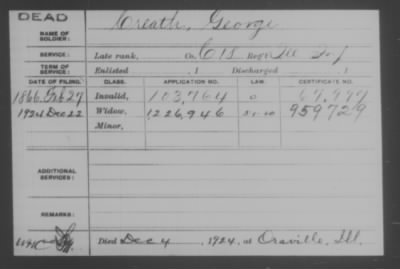 DEAD
NAME OF SOLDIER: Creath, George
SERVICE: Late rank, Co. C 18 Reg't Ill Inf
TERM OF SERVICE: Enlisted , 1 Discharged , 1
DATE OF FILING. CLASS. APPLICATION NO. LAW. CERTIFICATE NO.
1866 Feb 27 Invalid, 103,764
1924 Dec 22 Widow, 1226,946 959729
Minor,
ADDITIONAL SERVICES:
REMARKS:
Died Dec 4, 1924, at Oraville, Ill.